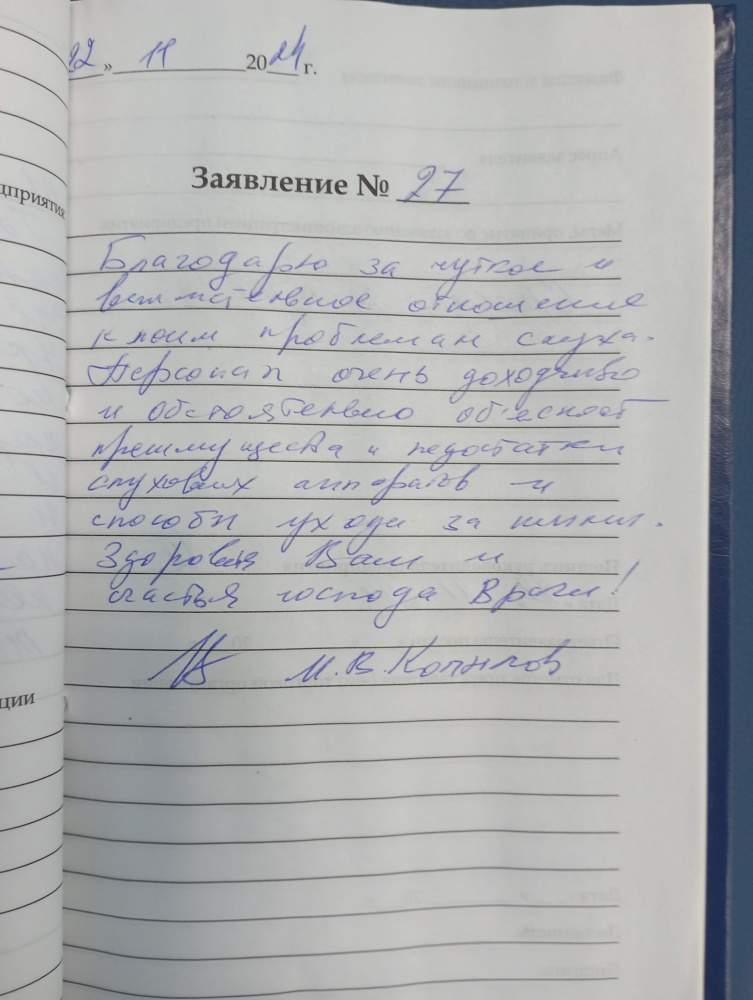 22 » 11 2024 г.
дприятия
Заявление № 27
Благодарю за чуткое и
внимательное отношение
к моим проблемам слуха.
Персонал очень доходчиво
и обстоятельно об'ясняет
преимущества и недостатки
слуховых аппаратов и
способы ухода за ними.
Здоровья Вам и
счастья господа Врачи!
М.В.Копылов
ции